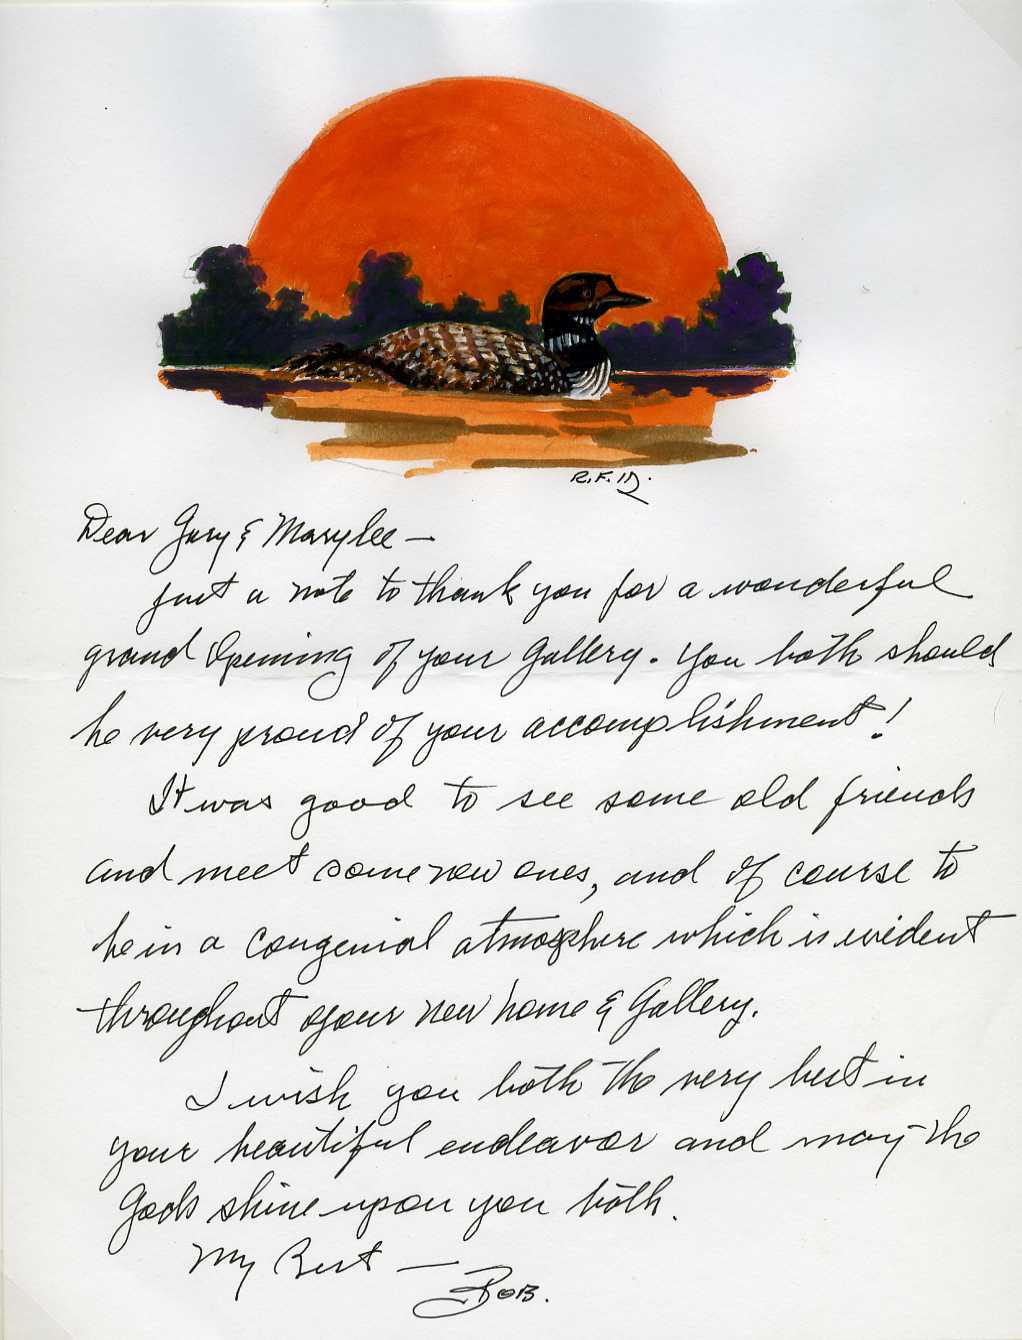 R.F.
Dear Gary & Marylee —
just a note to thank you for a wonderful
grand Opening of your Gallery. You both should
be very proud of your accomplishment!
It was good to see some old friends
and meet some new ones, and of course to
be in a congenial atmosphere which is evident
throughout your new home & Gallery.
I wish you both the very best in
your beautiful endeavor and may the
Gods shine upon you both.
My Best —
Bob.